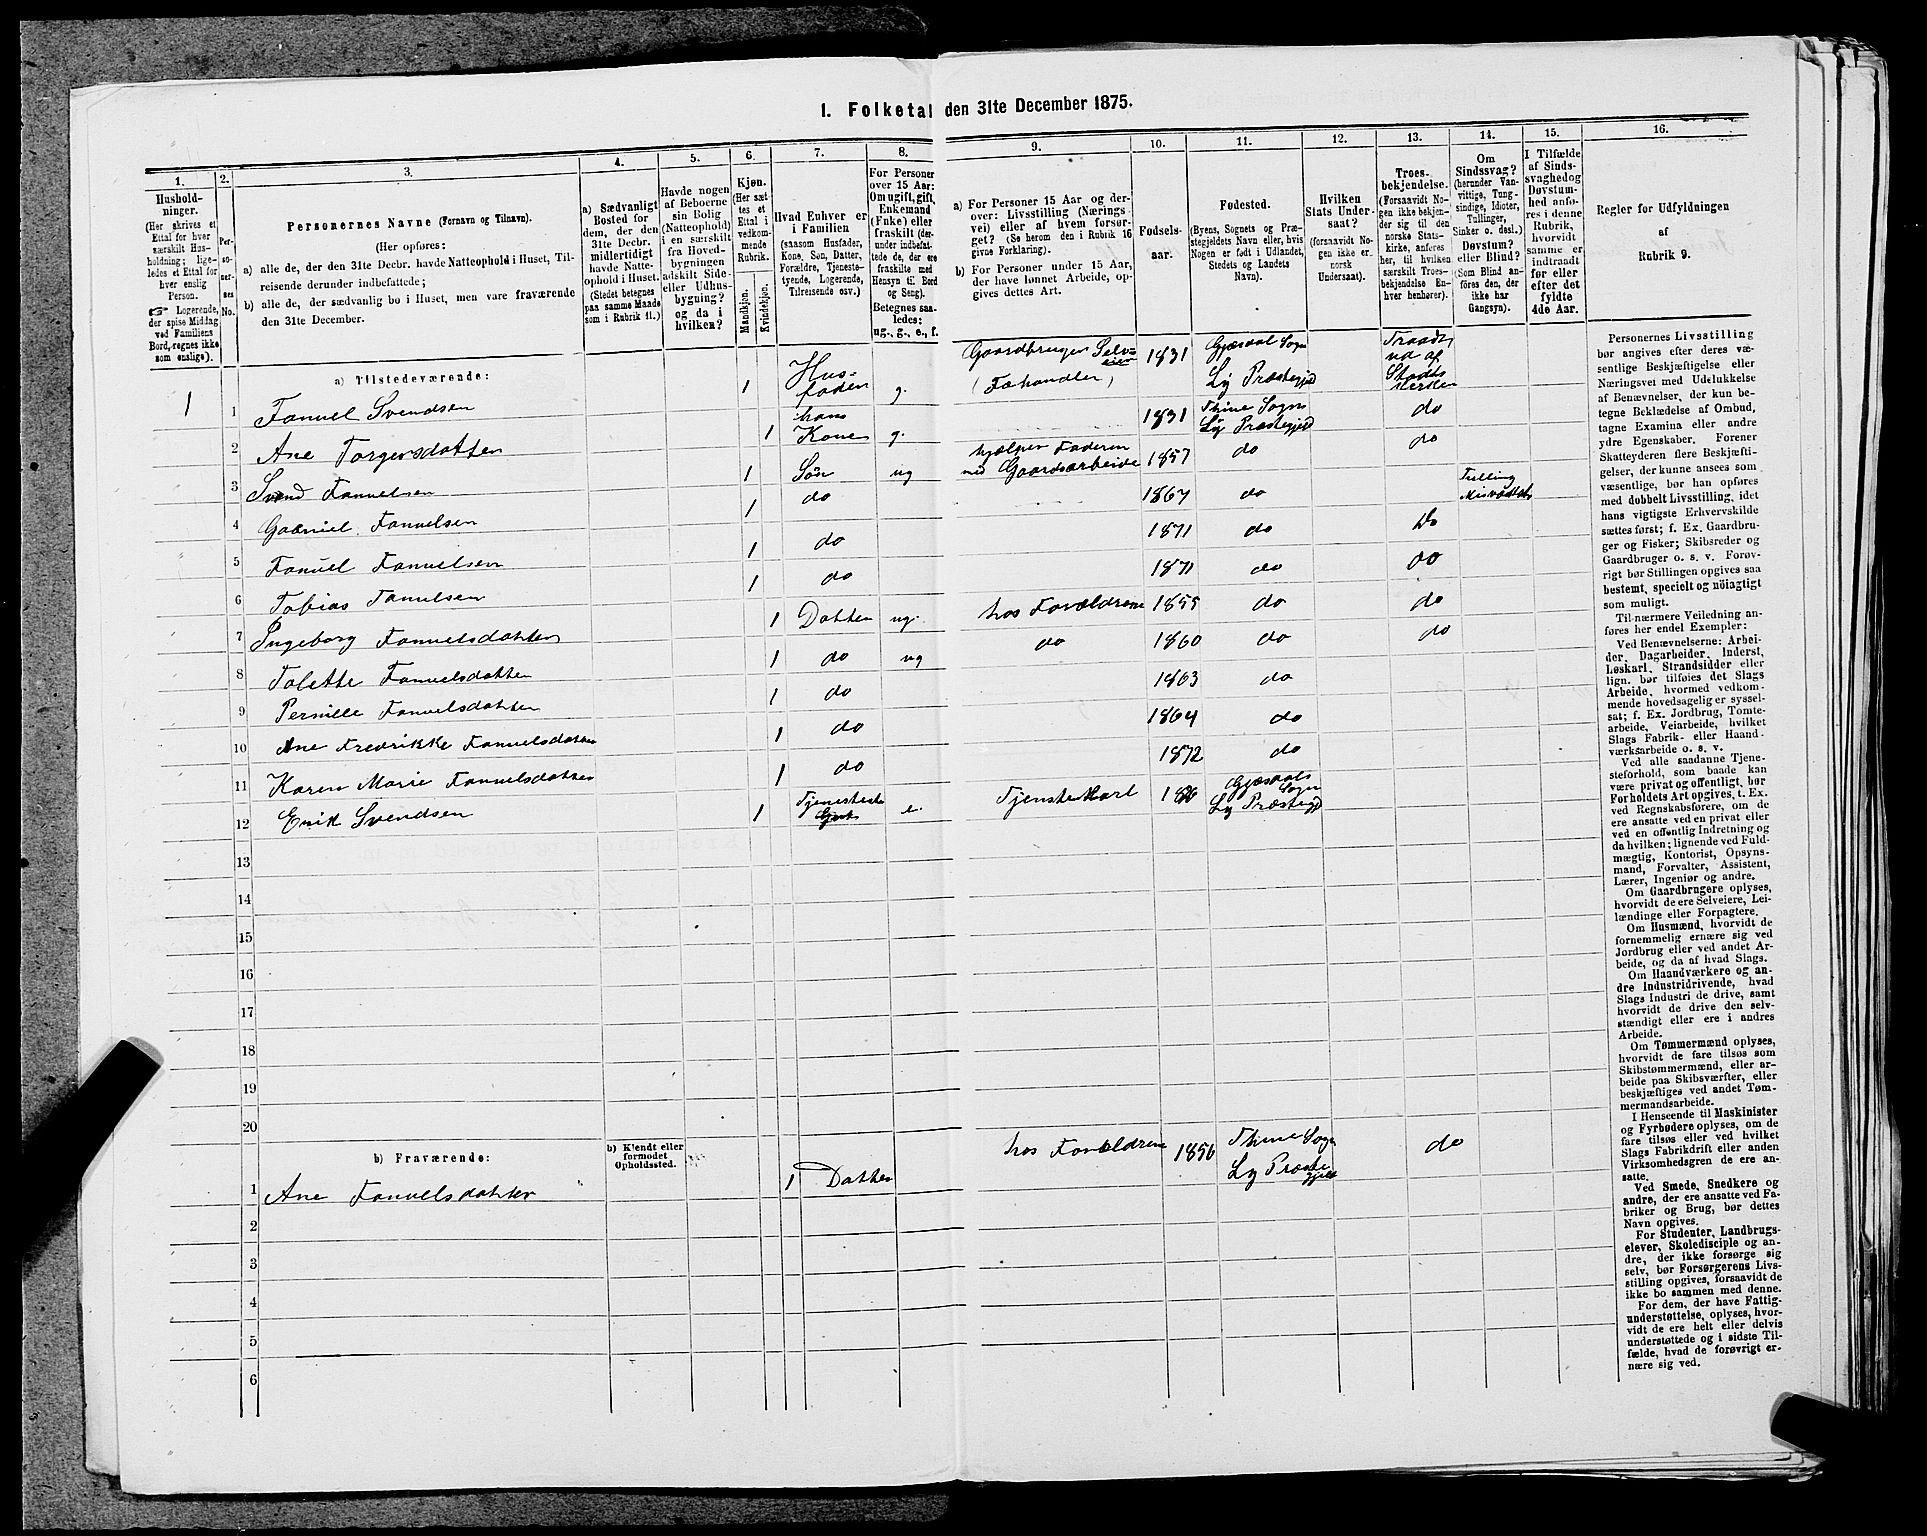 1. Folketal den 31te December 1875.
1.
2.
3.
4.
5.
6.
7.
8.
9.
10.
11.
12.
13.
14.
15.
16.
Hushold-
ninger.
(Her skrives et
Ettal for hver
særskilt Hus-
holdning; lige-
ledes et Ettal for
hver enslig
Person.
☞ Logerende,
der spise Middag
ved Familiens
Bord, regnes ikke
som enslige).
Per-
soner-
nes
No.
Personernes Navne (Fornavn og Tilnavn).
(Her opføres:
a) alle de, der den 31te Decbr. havde Natteophold i Huset, Til-
reisende derunder indbefattede;
b) alle de, der sædvanlig bo i Huset, men vare fraværende
den 31te December.
a) Sædvanligt
Bosted for
dem, der den
31te Decbr.
midlertidigt
havde Natte-
ophold i Huset.
(Stedet betegnes
paa samme Maade
som i Rubrik 11.)
Havde nogen
af Beboerne
sin Bolig
(Natteophold)
i en særskilt
fra Hoved-
bygningen
adskilt Side-
eller Udhus-
bygning?
og da i
hvilken?
Kjøn.
(Her sæt-
tes et
Ettal i
vedkom-
mende
Rubrik.
Mandkjøn.
Kvindekjøn.
Hvad Enhver er
i Familien
(saasom Husfader,
Kone, Søn, Datter,
Forældre, Tjeneste-
tyende, Logerende,
Tilreisende osv.)
For Personer
over 15 Aar:
Om ugift, gift,
Enkemand
(Enke) eller
fraskilt (der-
under indbefat-
tede de, der ere
fraskilte med
Hensyn til Bord
og Seng).
Betegnes saa-
ledes:
ug., g., e., f.
a) For Personer 15 Aar og der-
over: Livsstilling (Nærings-
vei) eller af hvem forsør-
get? (Se herom den i Rubrik 16
givne Forklaring).
b) For Personer under 15 Aar,
der have lønnet Arbeide, op-
gives dettes Art.
Fødsels-
aar.
Fødested.
(Byens, Sognets og Præ-
stegjeldets Navn eller, hvis
Nogen er født i Udlandet,
Stedets og Landets
Navn).
Hvilken
Stats Under-
saat?
(forsaavidt No-
gen ikke er
norsk
Undersaat).
Troes-
bekjendelse.
(Forsaavidt No-
gen ikke bekjen-
der sig til den
norske Stats-
kirke, anføres
her, til hvilken
særskilt Troes-
bekjendelse En-
hver henhører).
Om
Sindssvag?
(herunder Van-
vittige, Tung-
sindige, Idioter,
Tullinger,
Sinker o. desl.)
Døvstum?
eller Blind?
(Som Blind an-
føres den, der
ikke har
Gangsyn).
I Tilfælde
af Sinds-
svaghedog
Døvstum-
hed anfø-
res i denne
Rubrik,
hvorvidt
samme er
indtraadt
før eller
efter det
fyldte
4de Aar.
Regler for Udfyldningen
af
Rubrik 9.
a) Tilstedeværende:
1
1 Fanuel Svendsen 1 Hus-
fader g. Gaardbruger Selv-
eier
(Fæhandler) 1831 Gjæsdal Sogn
Ly Præstegjeld Traadt
ud af
Stads
kirken
2 Ane Torgersdatter 1 hans
Kone g. 1831 Thime Sogn
Ly Præstegjeld do
3 Svend Fanuelsen 1 Søn ug hjælper Faderen
med Gaardsarbeide 1857 do do
4 Gabriel Fanuelsen 1 do 1867 do Tulling
5 Fanuel Fanuelsen 1 do 1871 do Do
6 Tobias Fanuelsen 1 do 1871 do do
7 Ingeborg Fanuelsdatter 1 Datter ug. hos Forældrene 1855 do do
8 Tolette Fanuelsdatter 1 do ug do 1860 do do
9 Pernille Fanuelsdatter 1 do 1863 do
10 Ane Fredrikke Fanuelsdatter 1 do 1864 do
11 Karen Marie Fanuelsdatter 1 do 1872 do
12 Erik Svendsen 1 e. Tjenstekarl Gjæsdals
Sogn
Ly Præstegjd
13
14
15
16
17
18
19
20
b) Fraværende:
b) Kjendt eller
formodet
Opholdssted.
1 Ane Fanuelsdatter 1 Datter hos Forældrene 1856 Thime Sogn
Ly Præste-
gjeld do
2
3
4
5
6
Personernes Livsstilling
bør angives efter deres væ-
sentlige Beskjæftigelse eller
Næringsvei med Udelukkelse
af Benævnelser, der kun be-
tegne Beklædelse af Ombud,
tagne Examina eller andre
ydre Egenskaber. Forener
Skatteyderen flere Beskjæfti-
gelser, der kunne ansees som
væsentlige, bør han opføres
med dobbelt Livsstilling, idet
hans vigtigste Erhvervskilde
sættes først; f. Ex. Gaardbru-
ger og Fisker; Skibsreder og
Gaardbruger o. s. v. Forøv-
rigt bør Stillingen opgives saa
bestemt, specielt og nöiagtigt
som muligt.
Til nærmere Veiledning an-
føres her endel Exempler:
Ved Benævnelserne: Arbei-
der, Dagarbeider, Inderst,
Løskarl, Strandsidder eller
lign. bør tilføies det Slags
Arbeide, hvormed vedkom-
mende hovedsagelig er syssel-
sat; f. Ex. Jordbrug, Tomte-
arbeide, Veiarbeide, hvilket
Slags Fabrik- eller Haand-
værksarbeide o. s. v.
Ved alle saadanne Tjene-
steforhold, som baade kan
være privat og offentligt, bør
Forholdets Art opgives, t. Ex.
ved Regnskabsførere, om de
ere ansatte ved en privat eller
ved en offentlig Indretning og
da hvilken; lignende ved Fuld-
mægtig, Kontorist, Opsyns-
mand, Forvalter, Assistent,
Lærer, Ingeniør og andre.
Om Gaardbrugere oplyses,
hvorvidt de ere Selveiere, Lei-
lændinge eller Forpagtere.
Om Husmænd, hvorvidt de
fornemmelig ernære sig ved
Jordbrug eller ved andet Ar-
beide, og da af hvad Slags.
Om Haandværkere og an-
dre Industridrivende, hvad
Slags Industri de drive, samt
hvorvidt de drive den selv-
stændigt eller ere i andres
Arbeide.
Om Tømmermænd oplyses,
hvorvidt de fare tilsøs som
Skibstømmermænd, eller ar-
beide paa Skibsværfter, eller
beskjæftiges ved andet Tøm-
mermandsarbeide.
I Henseende til Maskinister
og Fyrbødere oplyses, om de
fare tilsøs eller ved hvilket
Slags Fabrikdrift eller anden
Virksomhedsgren de ere an-
satte.
Ved Smede, Snedkere og
andre, der ere ansatte ved Fa-
briker og Brug, bør dettes
Navn opgives.
For Studenter, Landbrugs-
elever, Skoledisciple og an-
dre, der ikke forsørge sig
selv, bør Forsørgerens Livs-
stilling opgives, forsaavidt de
ikke bo sammen med denne.
For dem, der have Fattig-
understøttelse, oplyses, hvor-
vidt de ere helt eller delvis
understøttede og i sidste Til-
fælde, hvad de forøvrigt er-
nære sig ved.